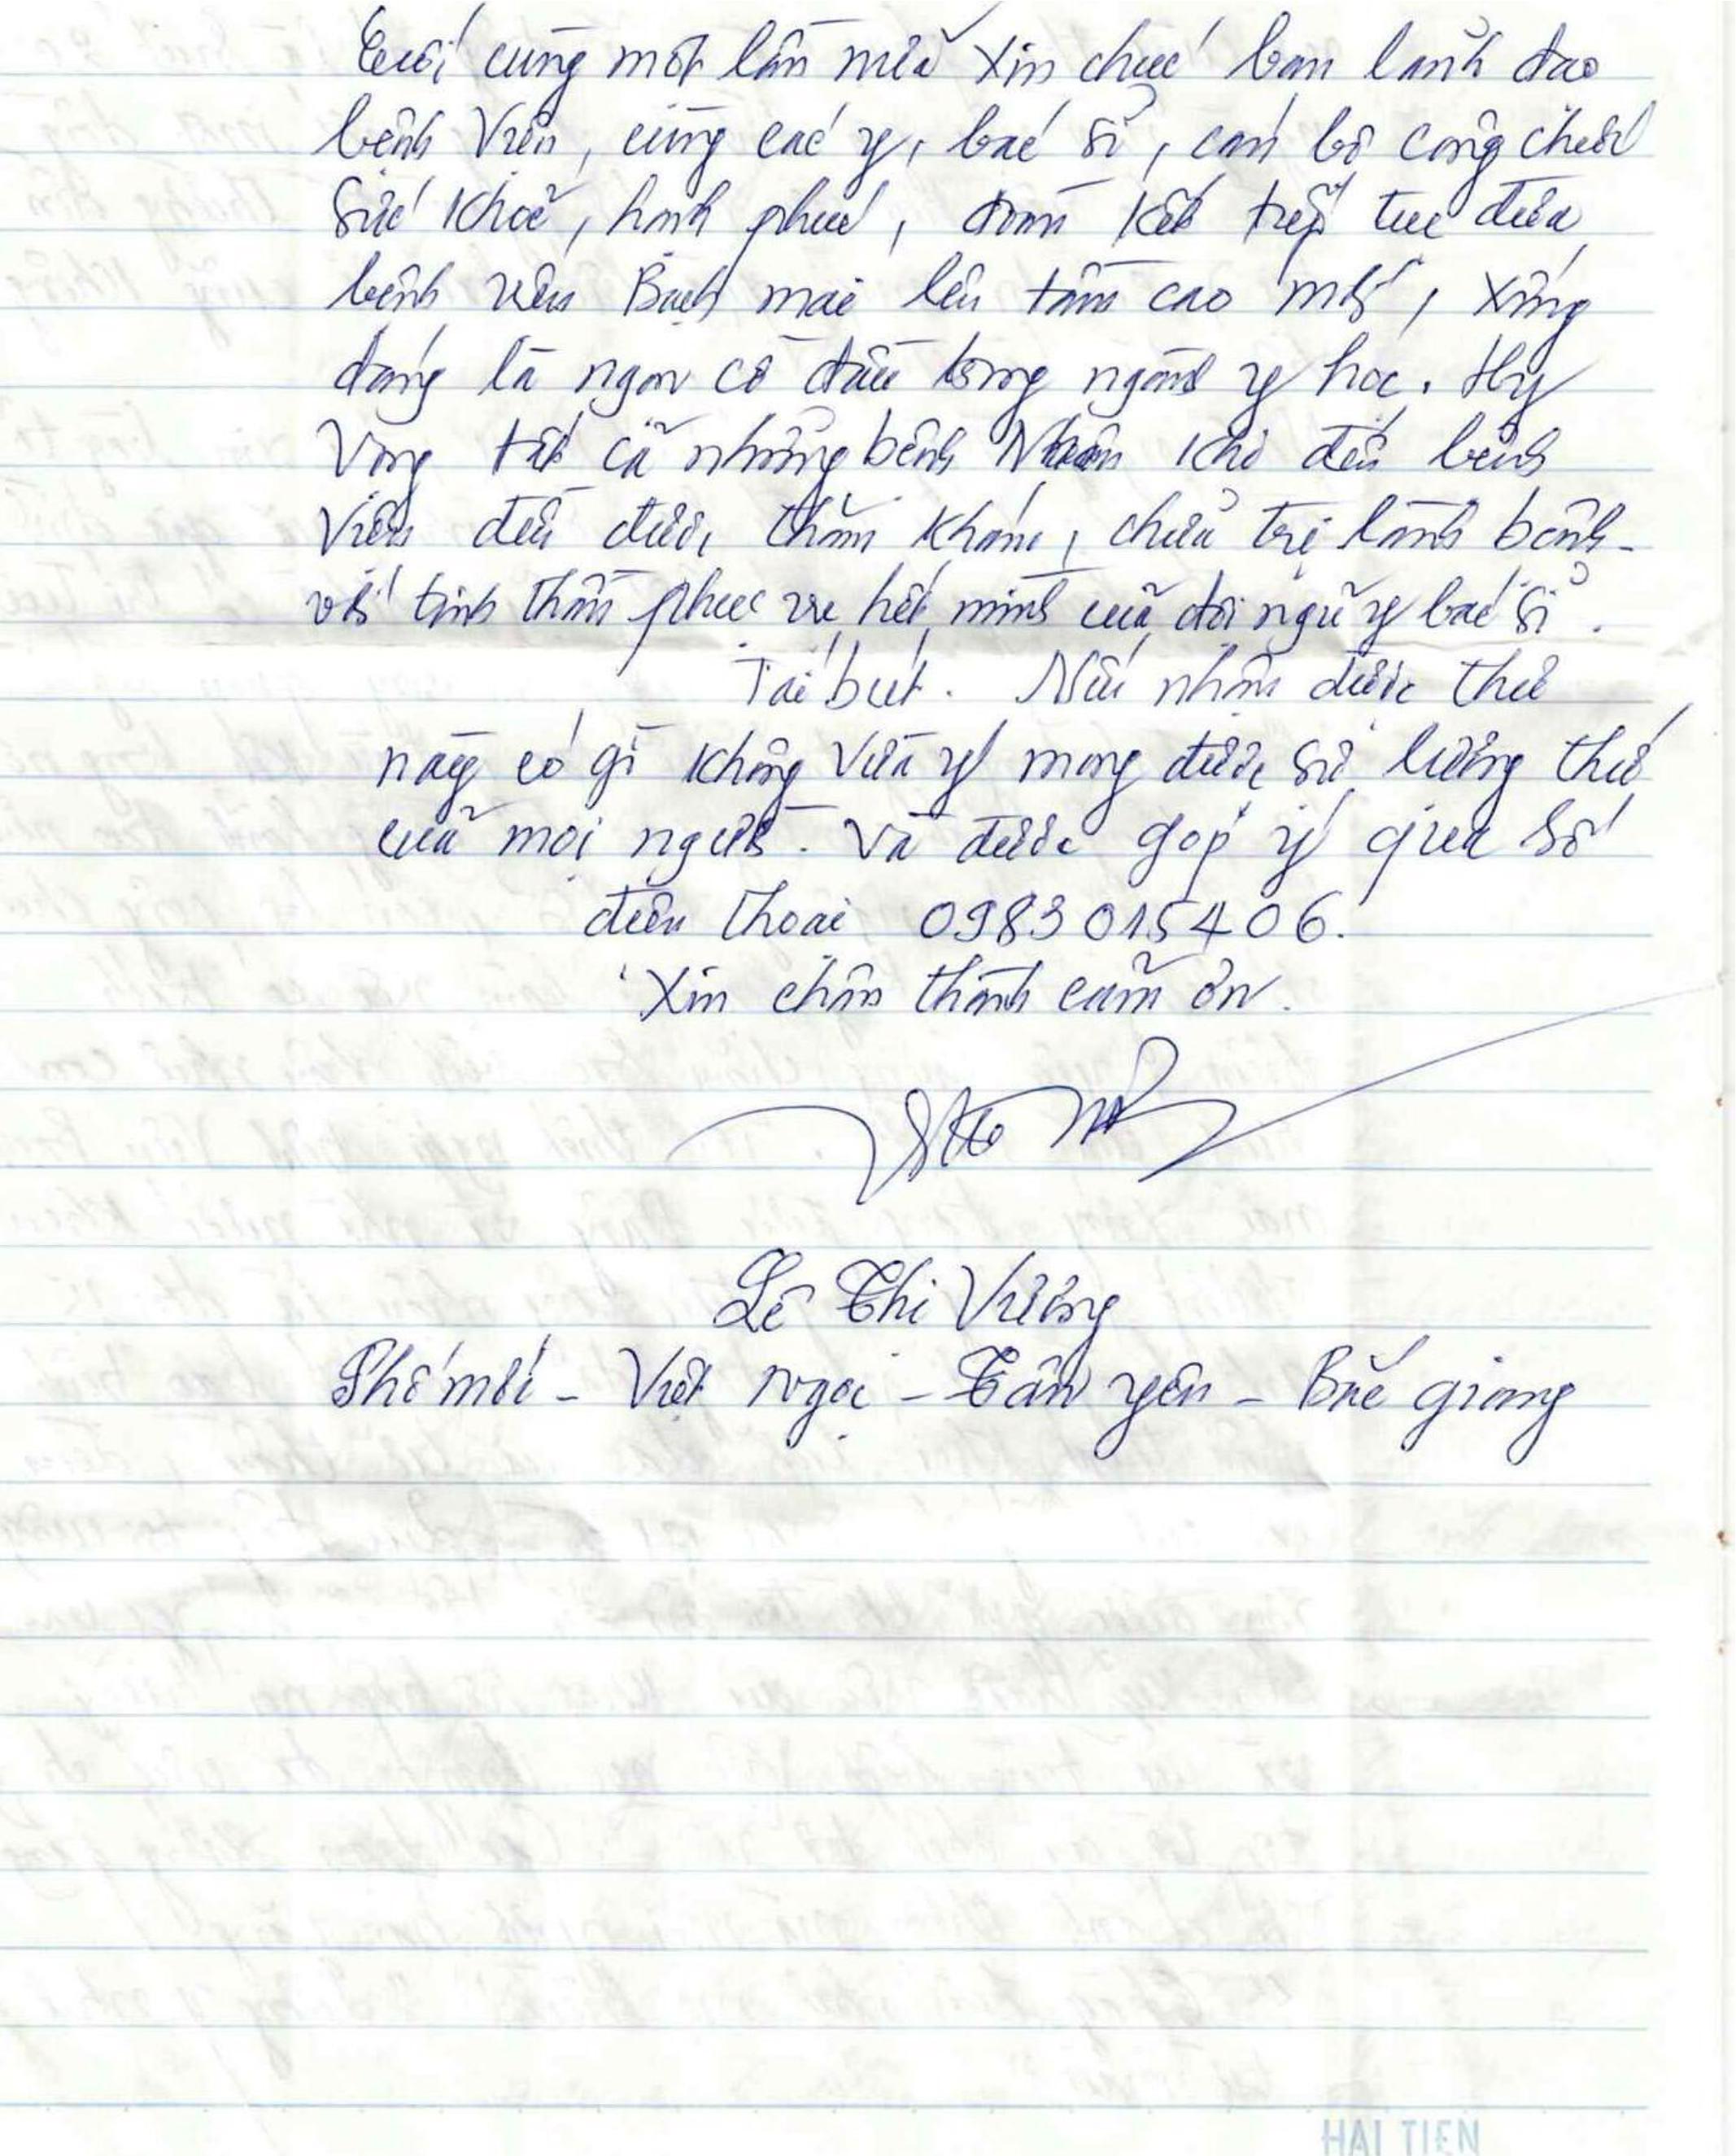 Cuối cùng một lần nữa xin chúc ban lãnh đạo
bệnh viện, cùng các y, bác sĩ, cán bộ công chức
sức khoẻ, hạnh phúc, đoàn kết tiếp tục đưa
bệnh viện Bạch mai lên tầm cao mới, xứng
đáng là ngọn cờ đầu trong ngành y học. Hy
Vọng tất cả những bệnh Nhân khi đến bệnh
Viện đều được thăm khám, chữa trị lành bệnh-
với tinh thần phục vụ hết mình của đội ngũ y bác sĩ.
Tái bút. Nếu nhận được thư
này có gì không vừa ý mong được sự lượng thứ
của mọi người. Và được góp ý qua số
điện thoại 0983 015406.
Xin chân thành cảm ơn.
Lê Thị Vương
Phố mới - Việt Ngọc - Tân yên - Bắc giang
HẢI TIẾN